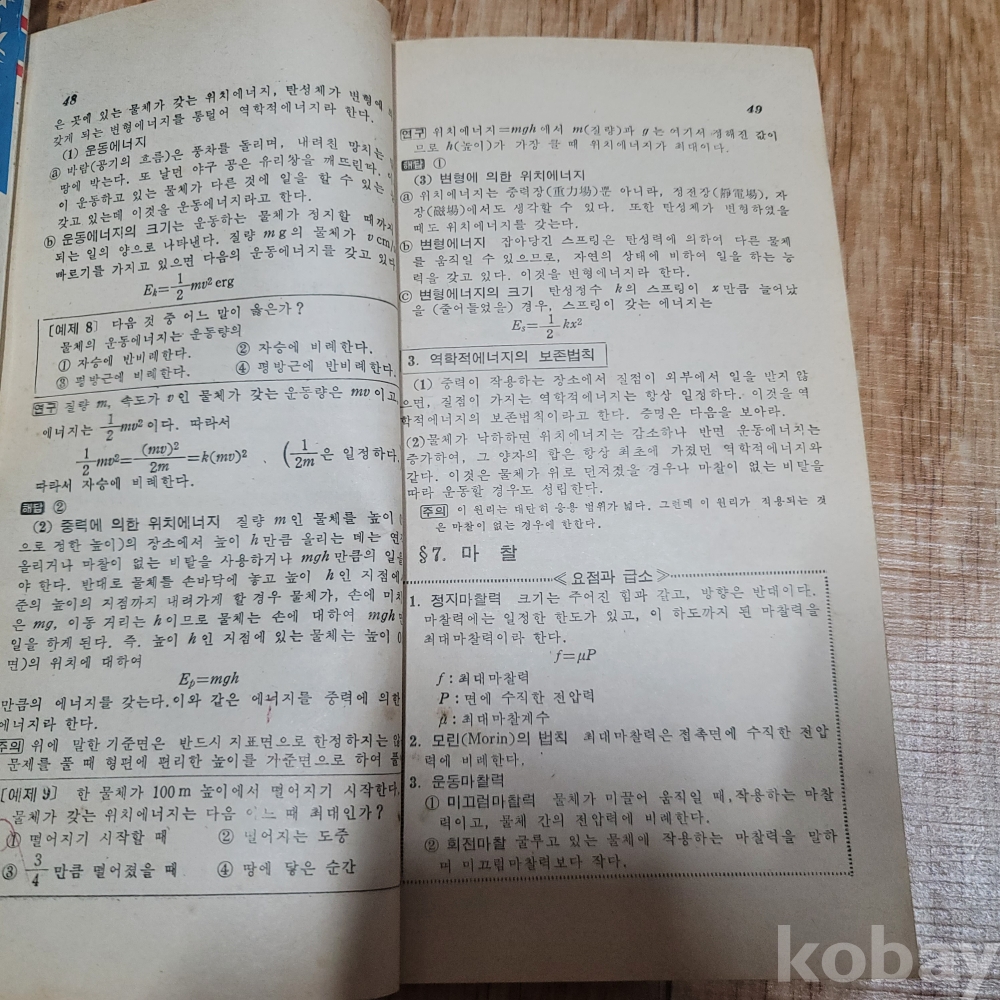 48
은 곳에 있는 물체가 갖는 위치에너지, 탄성체가 변형에
갖게 되는 변형에너지를 통털어 역학적에너지라 한다.
(1) 운동에너지
ⓐ 바람(공기의 흐름)은 풍차를 돌리며, 내려친 망치는
땅에 박는다. 또 날던 야구 공은 유리창을 깨뜨린다.
이 운동하고 있는 물체가 다른 것에 일을 할 수 있는
갖고 있는데 이것을 운동에너지라고 한다.
ⓑ 운동에너지의 크기는 운동하는 물체가 정지할 때까지
되는 일의 양으로 나타낸다. 질량 m g의 물체가 v cm/
빠르기를 가지고 있으면 다음의 운동에너지를 갖고 있다
Eₖ=1/2 mv² erg
[예제 8] 다음 것 중 어느 말이 옳은가?
물체의 운동에너지는 운동량의
① 자승에 반비례한다. ② 자승에 비례한다.
③ 평방근에 비례한다. ④ 평방근에 반비례한다.
연구 질량 m, 속도가 v인 물체가 갖는 운동량은 mv이고,
에너지는 1/2 mv²이다. 따라서
1/2 mv²=(mv)²/2m=k(mv)² (1/2m은 일정하다.
따라서 자승에 비례한다.
해답 ②
(2) 중력에 의한 위치에너지 질량 m인 물체를 높이
으로 정한 높이)의 장소에서 높이 h만큼 올리는 데는 연
올리거나 마찰이 없는 비탈을 사용하거나 mgh만큼의 일을
야 한다. 반대로 물체를 손바닥에 놓고 높이 h인 지점에
준의 높이의 지점까지 내려가게 할 경우 물체가, 손에 미치
은 mg, 이동 거리는 h이므로 물체는 손에 대하여 mgh
일을 하게 된다. 즉, 높이 h인 지점에 있는 물체는 높이 0
면)의 위치에 대하여
Eₚ=mgh
만큼의 에너지를 갖는다. 이와 같은 에너지를 중력에 의한
에너지라 한다.
주의 위에 말한 기준면은 반드시 지표면으로 한정하지는 않
문제를 풀 때 형편에 편리한 높이를 가준면으로 하여 풀
[예제 9] 한 물체가 100m 높이에서 떨어지기 시작한다.
물체가 갖는 위치에너지는 다음 어느 때 최대인가?
① 떨어지기 시작할 때 ② 떨어지는 도중
③ 3/4 만큼 떨어졌을 때 ④ 땅에 닿은 순간
49
연구 위치에너지=mgh에서 m(질량)과 g는 여기서 정해진 값이
므로 h(높이)가 가장 클 때 위치에너지가 최대이다.
해답 ①
(3) 변형에 의한 위치에너지
ⓐ 위치에너지는 중력장(重力場)뿐 아니라, 정전장(靜電場), 자
장(磁場)에서도 생각할 수 있다. 또한 탄성체가 변형하였을
때도 위치에너지를 갖는다.
ⓑ 변형에너지 잡아당긴 스프링은 탄성력에 의하여 다른 물체
를 움직일 수 있으므로, 자연의 상태에 비하여 일을 하는 능
력을 갖고 있다. 이것을 변형에너지라 한다.
ⓒ 변형에너지의 크기 탄성정수 k의 스프링이 x만큼 늘어났
을 (줄어들었을) 경우, 스프링이 갖는 에너지는
Eₛ=1/2 kx²
3. 역학적에너지의 보존법칙
(1) 중력이 작용하는 장소에서 질점이 외부에서 일을 받지 않
으면, 질점이 가지는 역학적에너지는 항상 일정하다. 이것을 역
학적에너지의 보존법칙이라고 한다. 증명은 다음을 보아라.
(2) 물체가 낙하하면 위치에너지는 감소하나 반면 운동에너지는
증가하여, 그 양자의 합은 항상 최초에 가졌던 역학적에너지와
같다. 이것은 물체가 위로 던져졌을 경우나 마찰이 없는 비탈을
따라 운동할 경우도 성립한다.
주의 이 원리는 대단히 응용 범위가 넓다. 그런데 이 원리가 적용되는 것
은 마찰이 없는 경우에 한한다.
§7. 마 찰
≪ 요점과 급소 ≫
1. 정지마찰력 크기는 주어진 힘과 같고, 방향은 반대이다.
마찰력에는 일정한 한도가 있고, 이 하도까지 된 마찰력을
최대마찰력이라 한다.
f=μP
f : 최대마찰력
P : 면에 수직한 전압력
μ : 최대마찰계수
2. 모린(Morin)의 법칙 최대마찰력은 접촉면에 수직한 전압
력에 비례한다.
3. 운동마찰력
① 미끄럼마찰력 물체가 미끌어 움직일 때, 작용하는 마찰
력이고, 물체 간의 전압력에 비례한다.
② 회전마찰 굴루고 있는 물체에 작용하는 마찰력을 말하
며 미끄럼마찰력보다 작다.
kobay